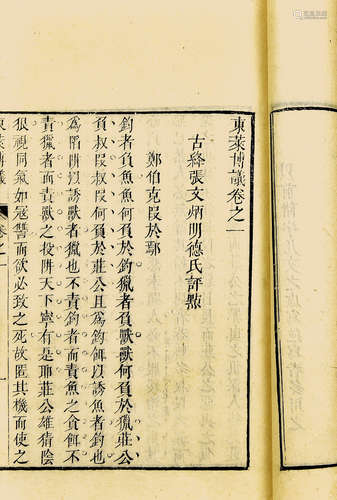 東萊博議卷之一
古絳張文炳明德氏評點
鄭伯克段於鄢
釣者負魚魚何負於釣獵者負獸獸何負於獵莊公
負叔段叔段何負於莊公且為鉤餌以誘魚者釣也
為陷阱以誘獸者獵也不責釣者而責魚之貪餌不
責獵者而責獸之投阱天下寧有是耶莊公雄猜陰
狠視同氣如寇讐而欲必致之死故匿其機而使之
東萊博議 卷之一